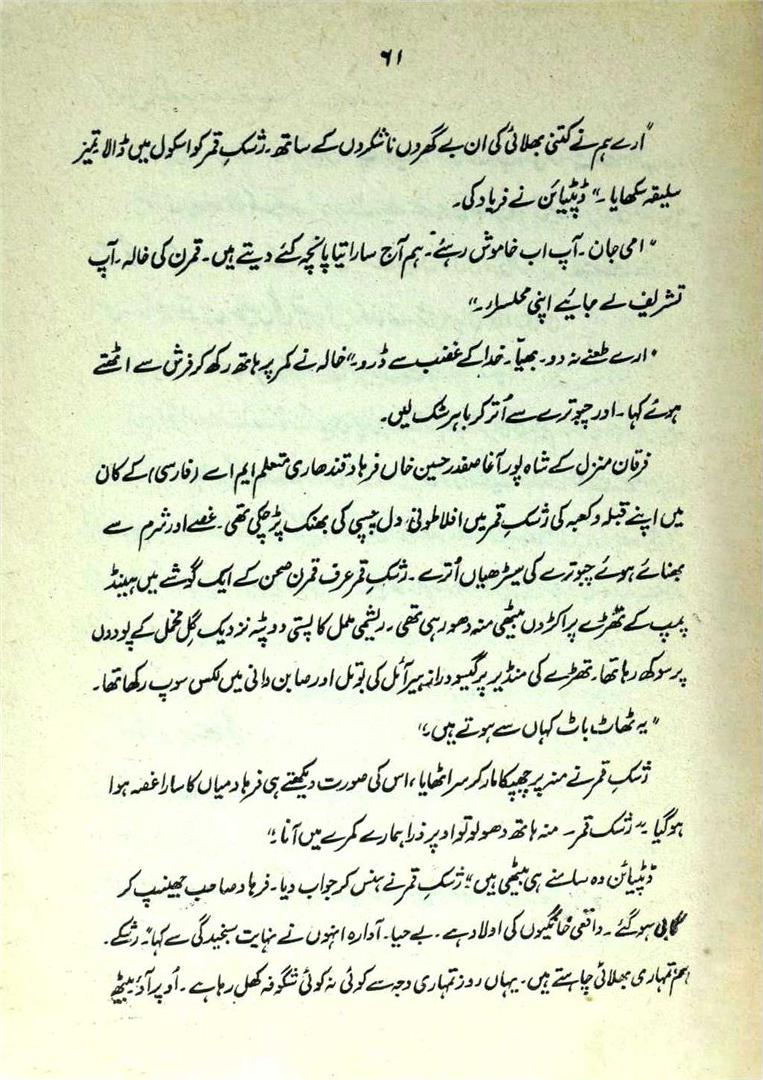 ۶۱
"ارے ہم نے کتنی بھلائی کی ان بے گھروں ناشکروں کے ساتھ۔ رشکِ قمر کو اسکول میں ڈالا تمیز
سلیقہ سکھایا۔" ڈپٹیائن نے فریاد کی۔
"امی جان۔ آپ اب خاموش رہئے۔ ہم آج سارا تیا پانچہ کئے دیتے ہیں۔ قمرن کی خالہ۔ آپ
تشریف لے جائیے اپنی محلسرا۔"
"ارے طعنے نہ دو۔ بھیّا۔ خدا کے غضب سے ڈرو۔" خالہ نے کمر پر ہاتھ رکھ کر فرش سے اٹھتے
ہوئے کہا۔ اور چبوترے سے اُتر کر باہر سٹک لیں۔
فرقان منزل کے شاہ پور آغا صفدر حسین خاں فرہاد قندھاری متعلم ایم اے (فارسی) کے کان
میں اپنے قبلہ و کعبہ کی رشکِ قمر میں افلاطونی دل چسپی کی بھنک پڑ چکی تھی۔ غصے اور شرم سے
بھنائے ہوئے چبوترے کی سیڑھیاں اُترے۔ رشکِ قمر عرف قمرن صحن کے ایک گوشے میں ہینڈ
پمپ کے تھڑے پر اکڑوں بیٹھی منہ دھو رہی تھی۔ ریشمی ململ کا پستی دوپٹہ نزدیک گلِ مخمل کے پودوں
پر سوکھ رہا تھا۔ تھڑے کی منڈیر پر گیسو دراز ہیر آئل کی بوتل اور صابن دانی میں لکس سوپ رکھا تھا۔
"یہ ٹھاٹ باٹ کہاں سے ہوتے ہیں۔"
رشکِ قمر نے منہ پر چھپکا مار کر سر اٹھایا، اس کی صورت دیکھتے ہی فرہاد میاں کا سارا غصہ ہوا
ہو گیا۔ "رشک قمر۔ منہ ہاتھ دھولو تو اوپر ذرا ہمارے کمرے میں آنا۔"
ڈپٹیائن وہ سامنے ہی بیٹھی ہیں" رشکِ قمر نے ہنس کر جواب دیا۔ فرہاد صاحب جھینپ کر
گلابی ہو گئے۔ واقعی خانگیوں کی اولاد ہے۔ بے حیا۔ آوارہ انہوں نے نہایت سنجیدگی سے کہا "رشکے۔
ہم تمہاری بھلائی چاہتے ہیں۔ یہاں روز تمہاری وجہ سے کوئی نہ کوئی شگوفہ کھل رہا ہے۔ اُوپر آؤ بیٹھ